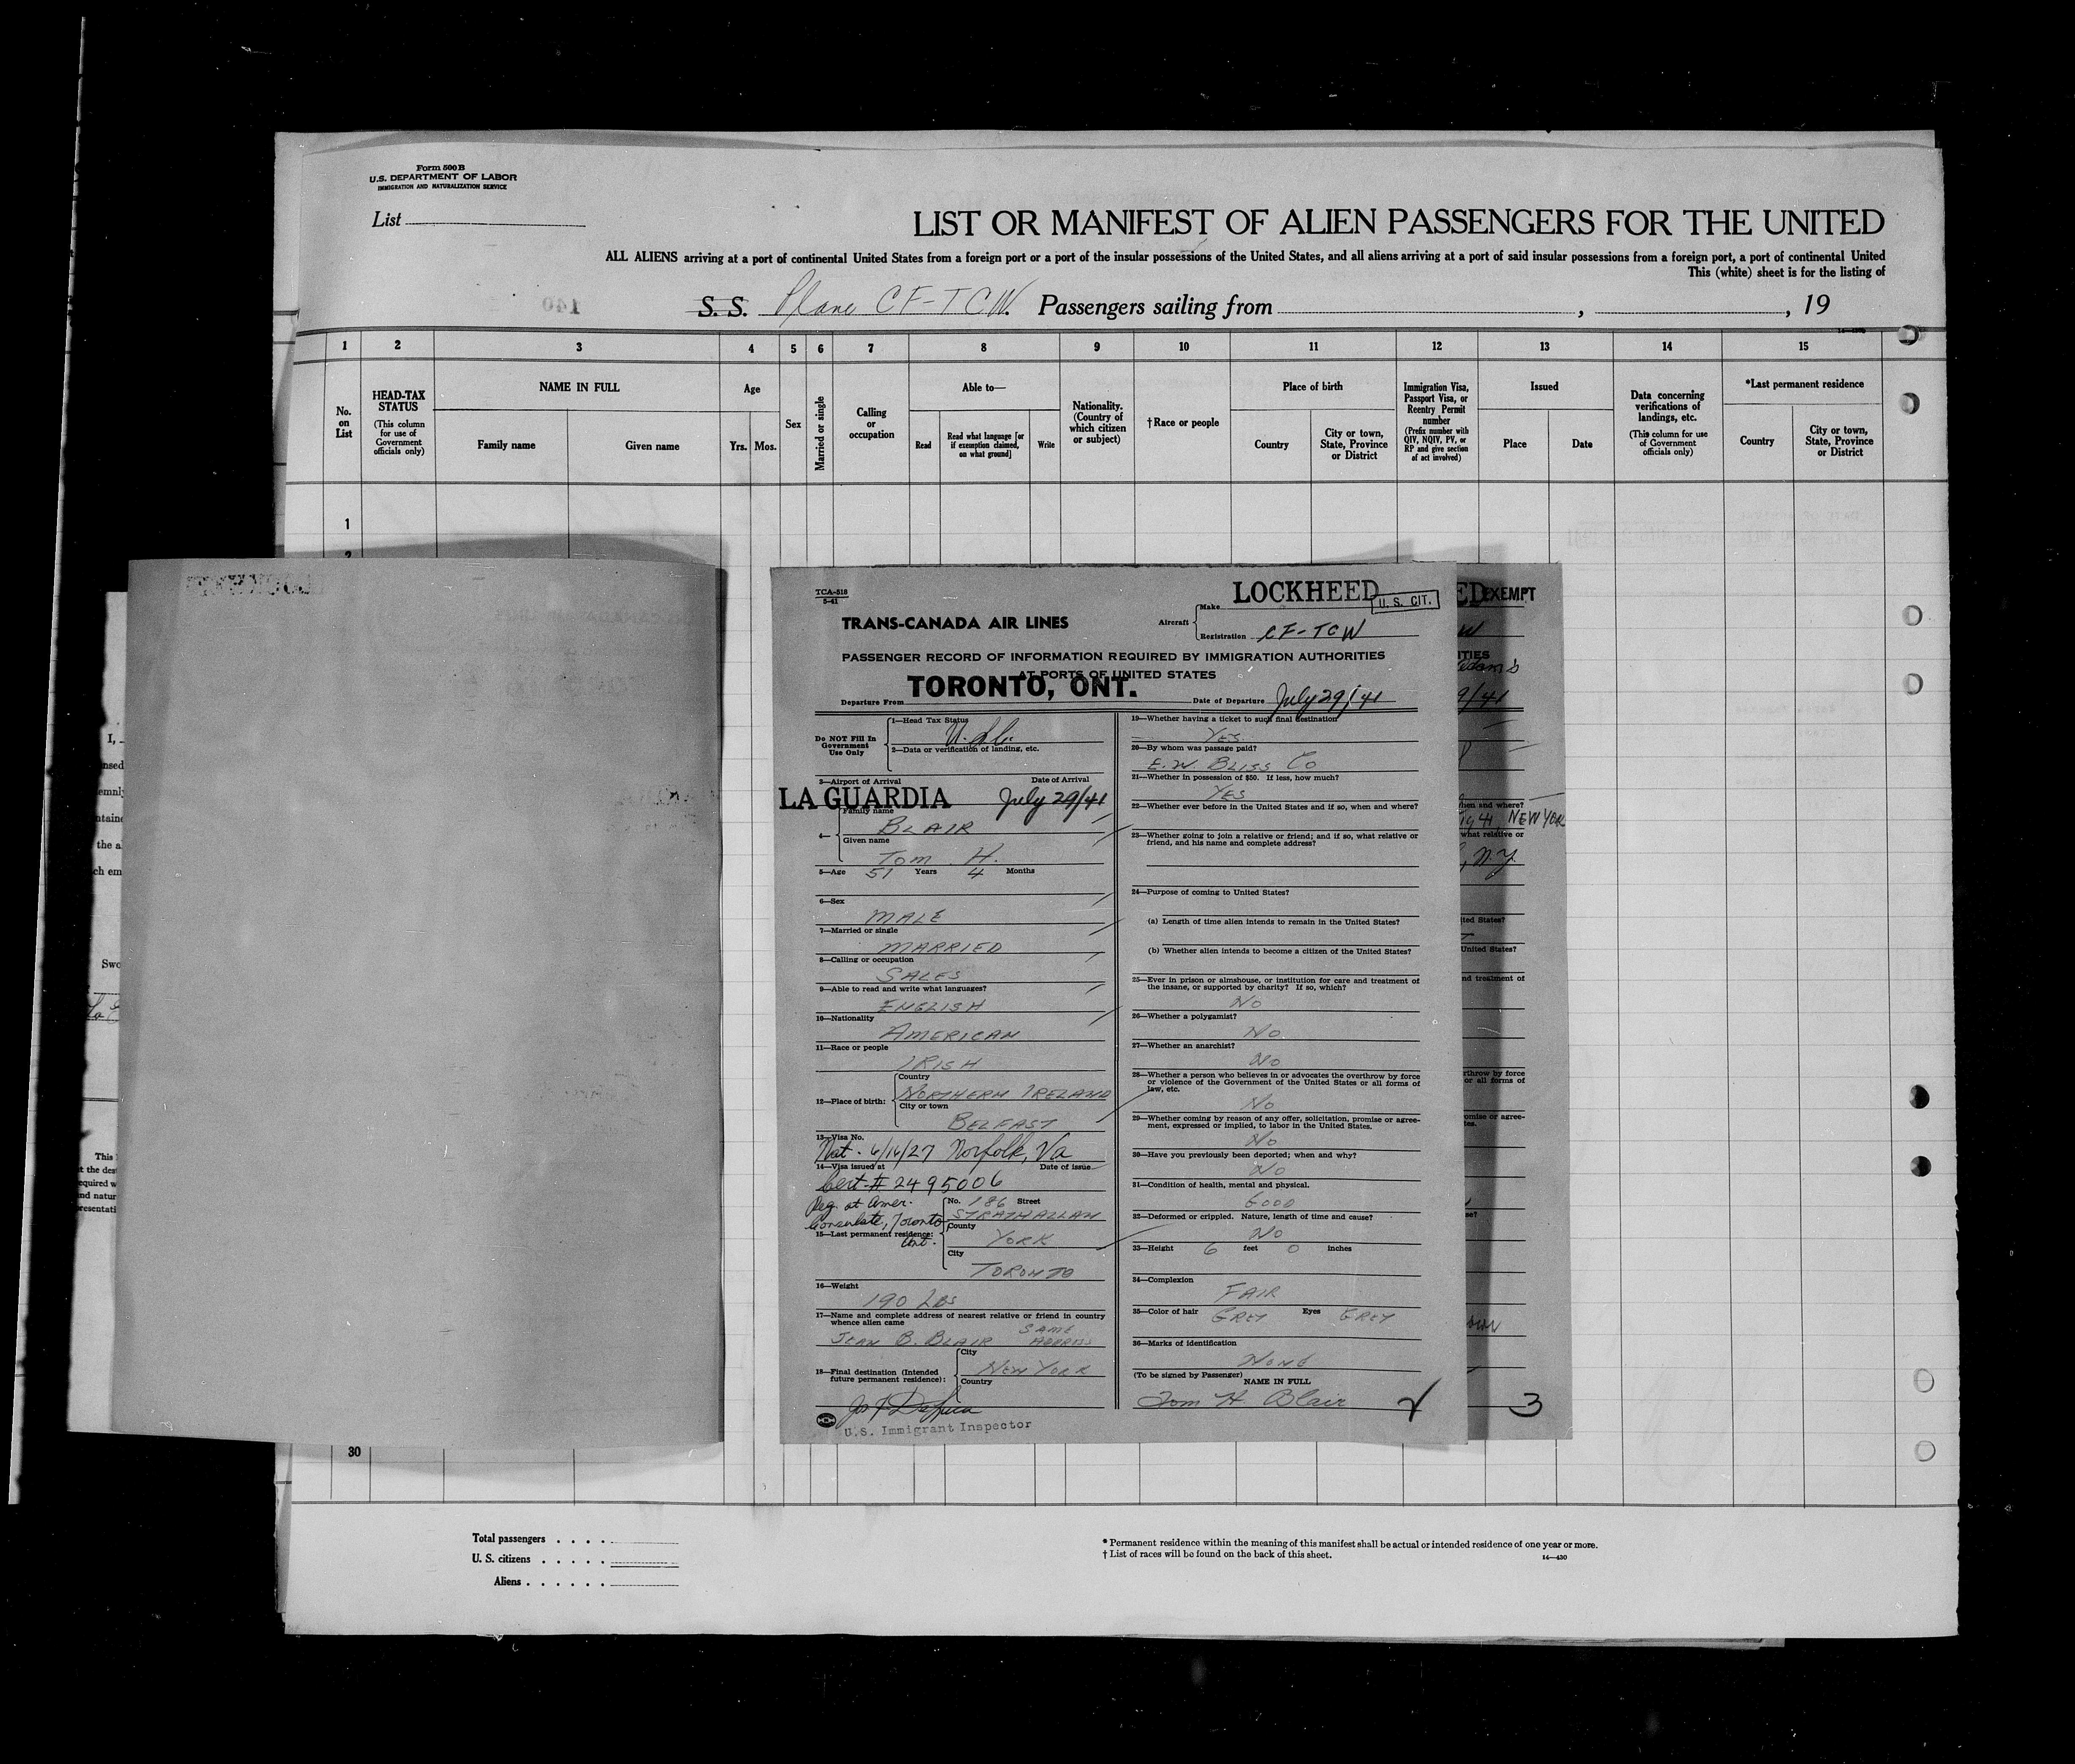 Form 500 B
U.S. DEPARTMENT OF LABOR
IMMIGRATION AND NATURALIZATION SERVICE
List
LIST OR MANIFEST OF ALIEN PASSENGERS FOR THE UNITED
ALL ALIENS arriving at a port of continental United States from a foreign port or a port of the insular possessions of the United States, and all aliens arriving at a port of said insular possessions from a foreign port, a port of continental United
This (white) sheet is for the listing of
140
S. S. Plane CF-TCW. Passengers sailing from , , 19
1 2 3 4 5 6 7 8 9 10 11 12 13 14 15
No. on List
HEAD-TAX STATUS
(This column for use of Government officials only)
NAME IN FULL
Family name
Given name
Age
Yrs. Mos.
Sex
Married or single
Calling or occupation
Able to—
Read
Read what language [or if exemption claimed, on what ground]
Write
Nationality. (Country of which citizen or subject)
†Race or people
Place of birth
Country
City or town, State, Province or District
Immigration Visa, Passport Visa, or Reentry Permit number
(Prefix number with QIV, NQIV, PV, or RP and give section of act involved)
Issued
Place
Date
Data concerning verifications of landings, etc.
(This column for use of Government officials only)
*Last permanent residence
Country
City or town, State, Province or District
1
2
TCA-518
5-41
TRANS-CANADA AIR LINES
Aircraft
Make LOCKHEED
U. S. CIT.
Registration CF-TCW
PASSENGER RECORD OF INFORMATION REQUIRED BY IMMIGRATION AUTHORITIES
AT PORTS OF UNITED STATES
Departure From TORONTO, ONT.
Date of Departure July 29/41
Do NOT Fill In Government Use Only
1—Head Tax Status
2—Data or verification of landing, etc.
3—Airport of Arrival Date of Arrival
LA GUARDIA July 29/41
4— Family name
BLAIR
Given name
TOM H.
5—Age 51 Years 4 Months
6—Sex
MALE
7—Married or single
MARRIED
8—Calling or occupation
SALES
9—Able to read and write what languages?
ENGLISH
10—Nationality
AMERICAN
11—Race or people
IRISH
12—Place of birth:
Country
NORTHERN IRELAND
City or town
BELFAST
13—Visa No.
Nat. 6/16/27 Norfolk, Va
14—Visa issued at Date of issue
Cert # 2495006
Reg. at Amer. Consulate, Toronto Ont.
15—Last permanent residence:
No. 186 Street
STRATHALLAN
County
YORK
City
TORONTO
16—Weight
190 LBS
17—Name and complete address of nearest relative or friend in country whence alien came
JEAN B. BLAIR SAME ADDRESS
18—Final destination (Intended future permanent residence):
City
NEW YORK
Country
U.S. Immigrant Inspector
19—Whether having a ticket to such final destination
YES.
20—By whom was passage paid?
E.W. BLISS CO
21—Whether in possession of $50. If less, how much?
YES
22—Whether ever before in the United States and if so, when and where?
23—Whether going to join a relative or friend; and if so, what relative or
friend, and his name and complete address?
24—Purpose of coming to United States?
(a) Length of time alien intends to remain in the United States?
(b) Whether alien intends to become a citizen of the United States?
25—Ever in prison or almshouse, or institution for care and treatment of
the insane, or supported by charity? If so, which?
NO
26—Whether a polygamist?
NO
27—Whether an anarchist?
NO
28—Whether a person who believes in or advocates the overthrow by force
or violence of the Government of the United States or all forms of
law, etc.
NO
29—Whether coming by reason of any offer, solicitation, promise or agree-
ment, expressed or implied, to labor in the United States.
NO
30—Have you previously been deported; when and why?
NO
31—Condition of health, mental and physical.
GOOD
32—Deformed or crippled. Nature, length of time and cause?
NO
33—Height 6 feet 0 inches
34—Complexion
FAIR
35—Color of hair GREY Eyes GREY
36—Marks of identification
NONE
(To be signed by Passenger)
NAME IN FULL
Tom H Blair
EXEMPT
9/41
hen and where?
NEW YORK
what relative or
, N.Y.
ited States?
United States?
nd treatment of
rthrow by force
or all forms of
omise or agree-
tes.
se?
3
30
Total passengers
U. S. citizens
Aliens
* Permanent residence within the meaning of this manifest shall be actual or intended residence of one year or more.
† List of races will be found on the back of this sheet.
14—430